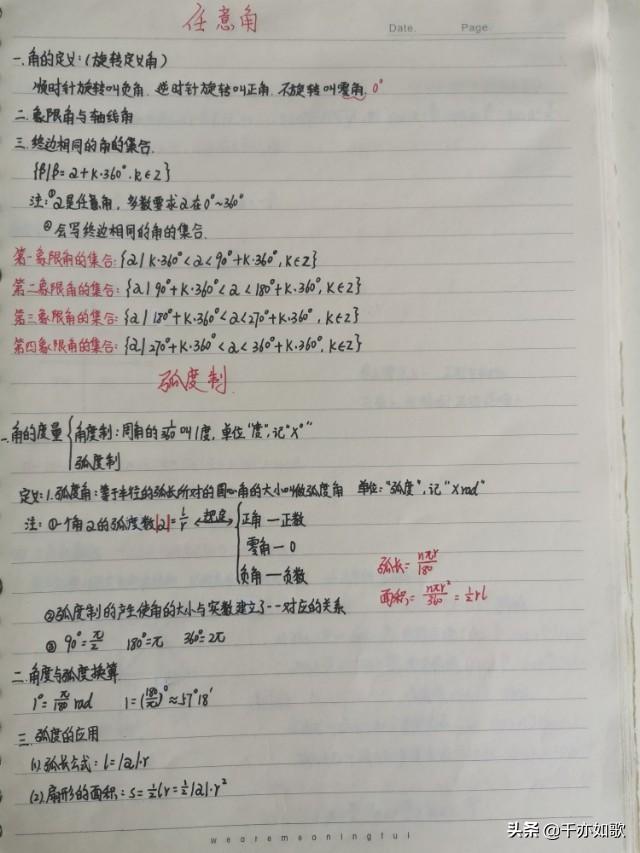 任意角
Date.  Page.
一.角的定义:(旋转定义角)
顺时针旋转叫负角.逆时针旋转叫正角.不旋转叫零角.0°
二.象限角与轴线角
三.终边相同的角的集合.
{β|β=α+k·360°.k∈Z}
注:①α是任意角,多数要求α在0°~360°
②会写终边相同的角的集合.
第一象限角的集合:{α|k·360°<α<90°+k·360°,k∈Z}
第二象限角的集合:{α|90°+k·360°<α<180°+k·360°,k∈Z}
第三象限角的集合:{α|180°+k·360°<α<270°+k·360°,k∈Z}
第四象限角的集合:{α|270°+k·360°<α<360°+k·360°,k∈Z}
弧度制
一.角的度量 { 角度制:周角的1/360叫1度,单位"度",记"x°"
弧度制
定义:1.弧度角:等于半径的弧长所对的圆心角的大小叫做弧度角 单位:"弧度",记"x rad"
注:①一个角α的弧度数|α|=l/r ←规定→ { 正角—正数
零角—0
负角—负数
弧长=nπr/180
面积=nπr²/360=½rl
②弧度制的产生使角的大小与实数建立了一一对应的关系
③ 90°=π/2  180°=π  360°=2π
二.角度与弧度换算
1°=π/180 rad  1=(180/π)°≈57°18′
三.弧度的应用
(1).弧长公式:l=|α|·r
(2).扇形的面积:S=½lr=½|α|·r²
wearemeaningful
头条 @千亦如歌